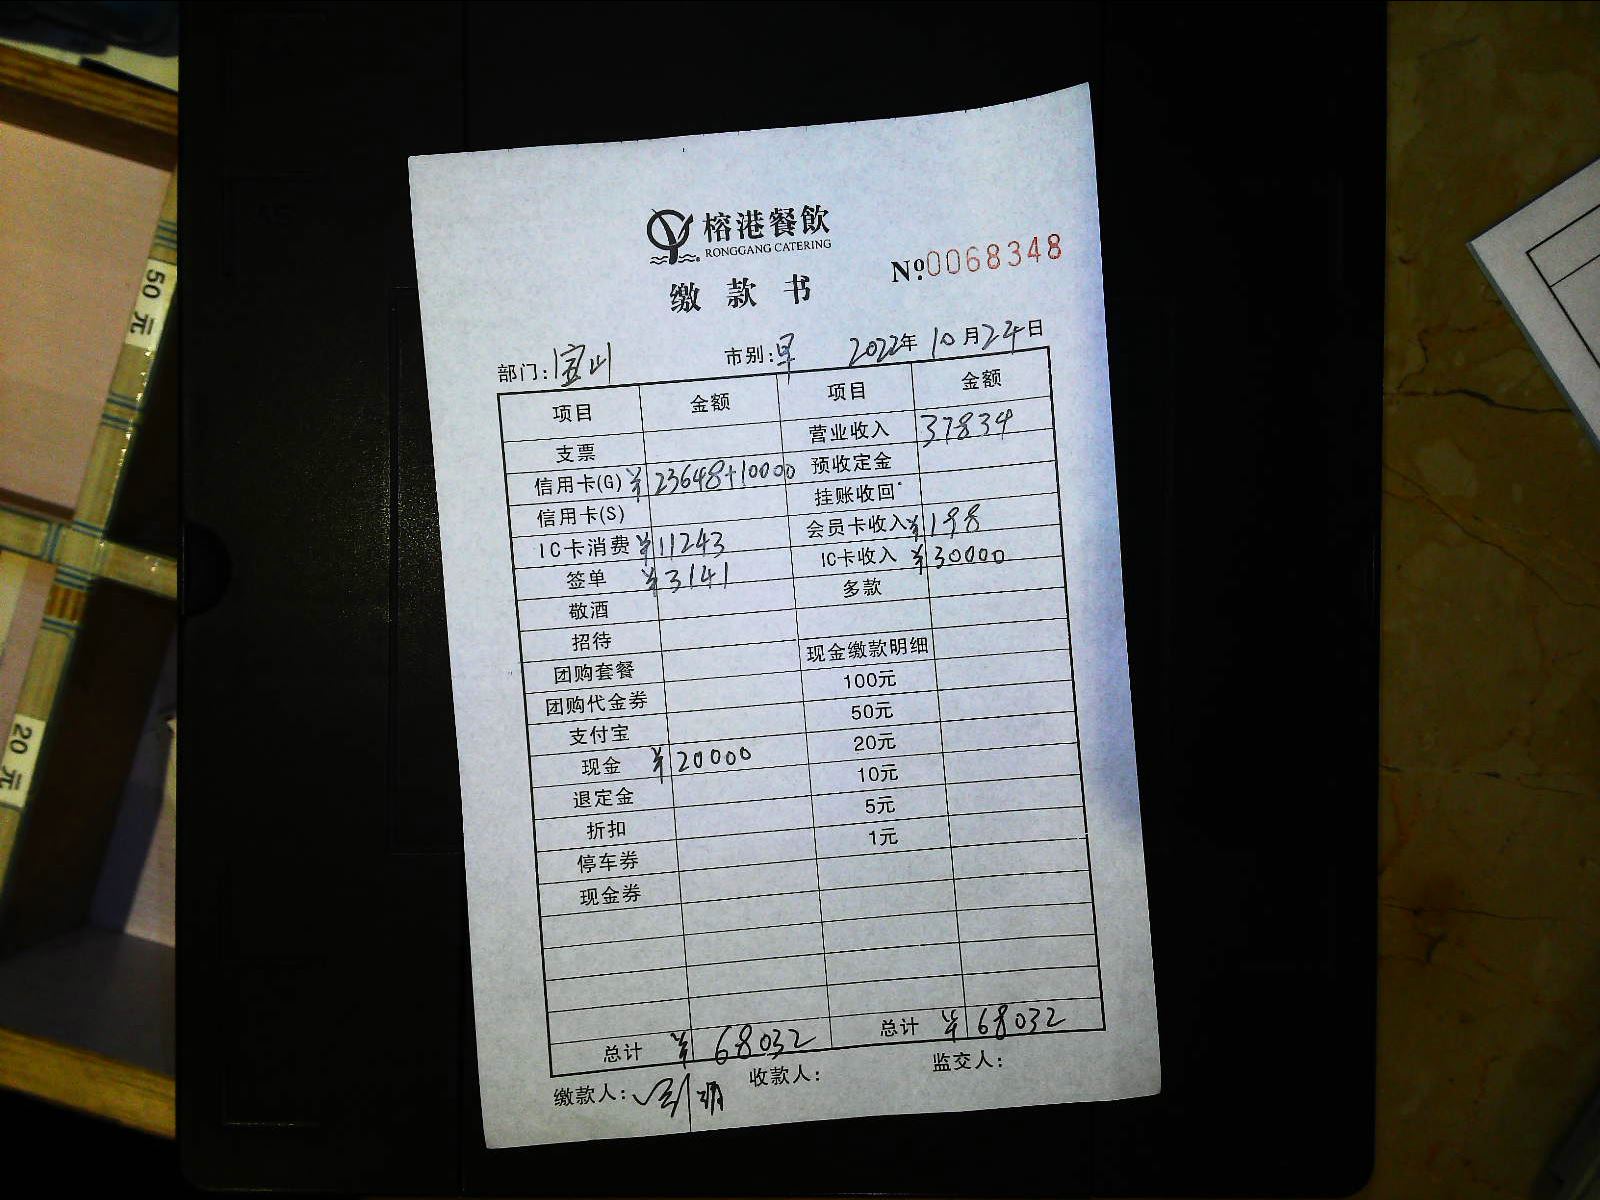 榕港餐飲
RONGGANG CATERING
№0068348
缴款书
部门:宝山 市别:早 2022年10月24日
项目 金额 项目 金额
支票 营业收入 37834
信用卡(G) ¥23648+10000 预收定金
信用卡(S) 挂账收回
IC卡消费 ¥11243 会员卡收入 ¥198
签单 ¥3141 IC卡收入 ¥30000
敬酒 多款
招待
团购套餐 现金缴款明细
团购代金券 100元
支付宝 50元
现金 ¥20000 20元
退定金 10元
折扣 5元
停车券 1元
现金券
总计 ¥68032 总计 ¥68032
缴款人: 收款人: 监交人:
50元
20元